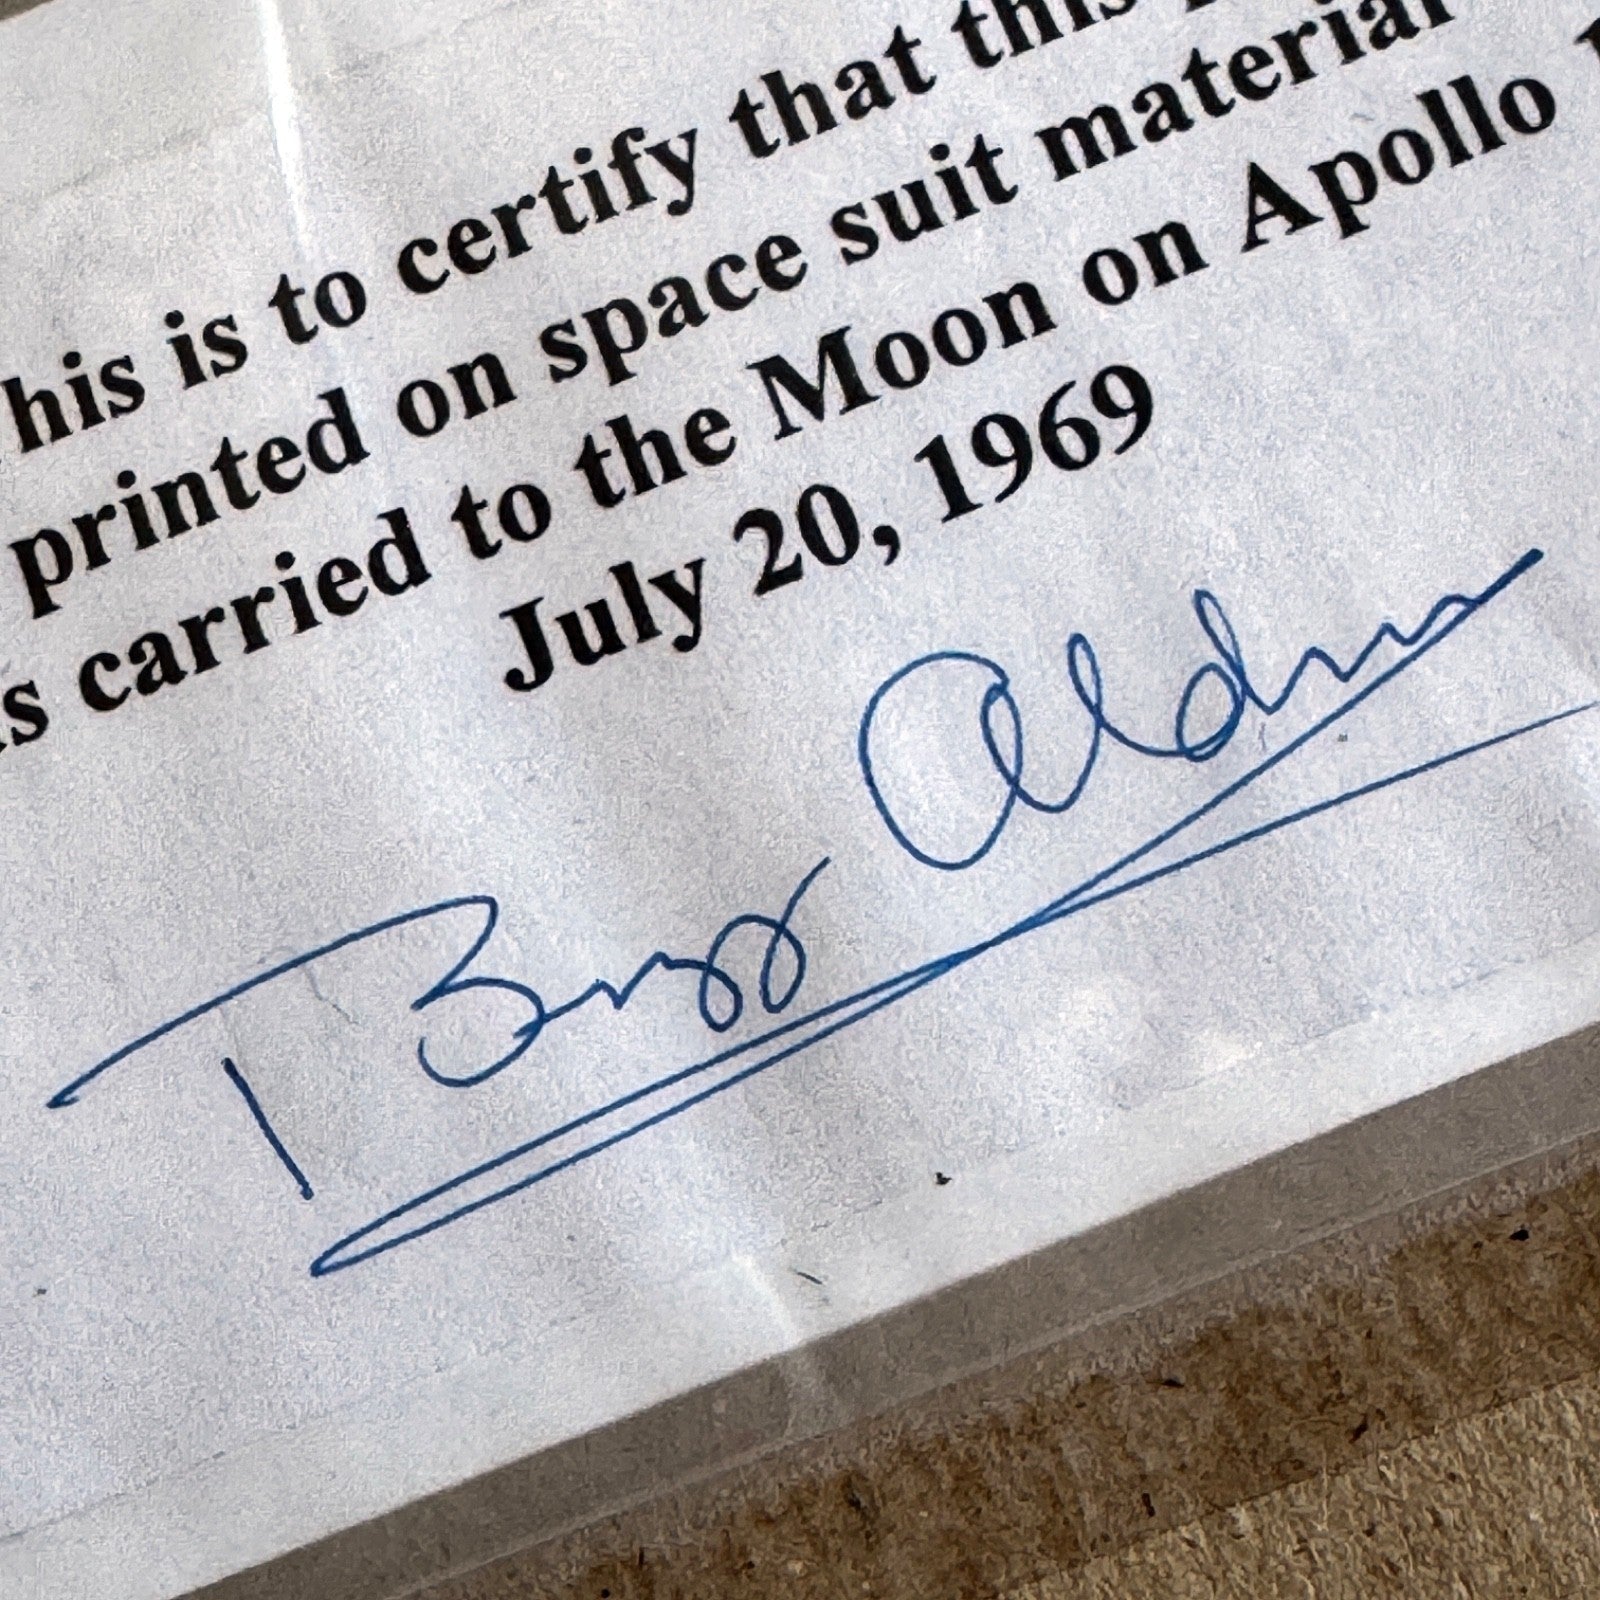 his is to certify that this
printed on space suit material
s carried to the Moon on Apollo
July 20, 1969
Buzz Aldrin